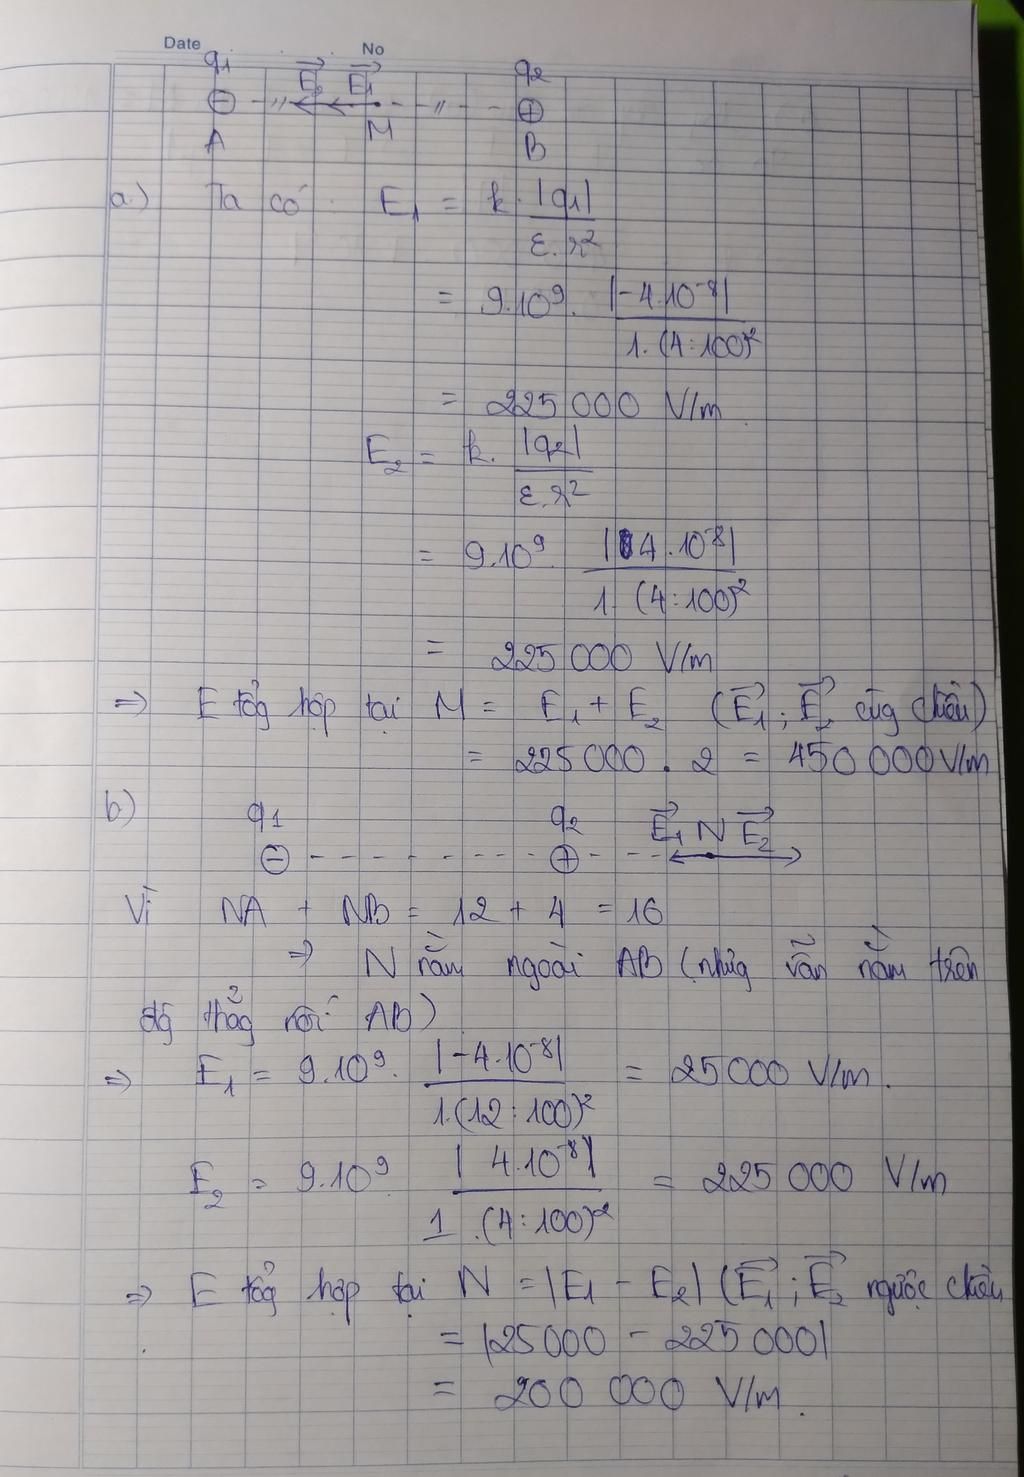 Date No
q₁ E₂ E₁ q₂
⊖ ⊕
A M B
a) Ta có E₁ = k. |q₁| / ε.r²
= 9.10⁹. |-4.10⁻⁸| / 1.(4:100)²
= 225 000 V/m
E₂ = k. |q₂| / ε.r²
= 9.10⁹. |4.10⁻⁸| / 1.(4:100)²
= 225 000 V/m
=> E tổg hợp tại M = E₁ + E₂ (E₁; E₂ cùg chiều)
= 225 000 . 2 = 450 000 V/m
b)
q₁ q₂ E₁ N E₂
⊖ ⊕
Vì NA + NB = 12 + 4 = 16
=> N nằm ngoài AB (nhưg vẫn nằm trên
đg thẳg nối AB)
=> E₁ = 9.10⁹. |-4.10⁻⁸| / 1.(12:100)² = 25000 V/m.
E₂ = 9.10⁹ |4.10⁻⁸| / 1.(4:100)² = 225 000 V/m
=> E tổg hợp tại N = |E₁ - E₂| (E₁; E₂ ngược chiều
= |25000 - 225000|
= 200 000 V/m.